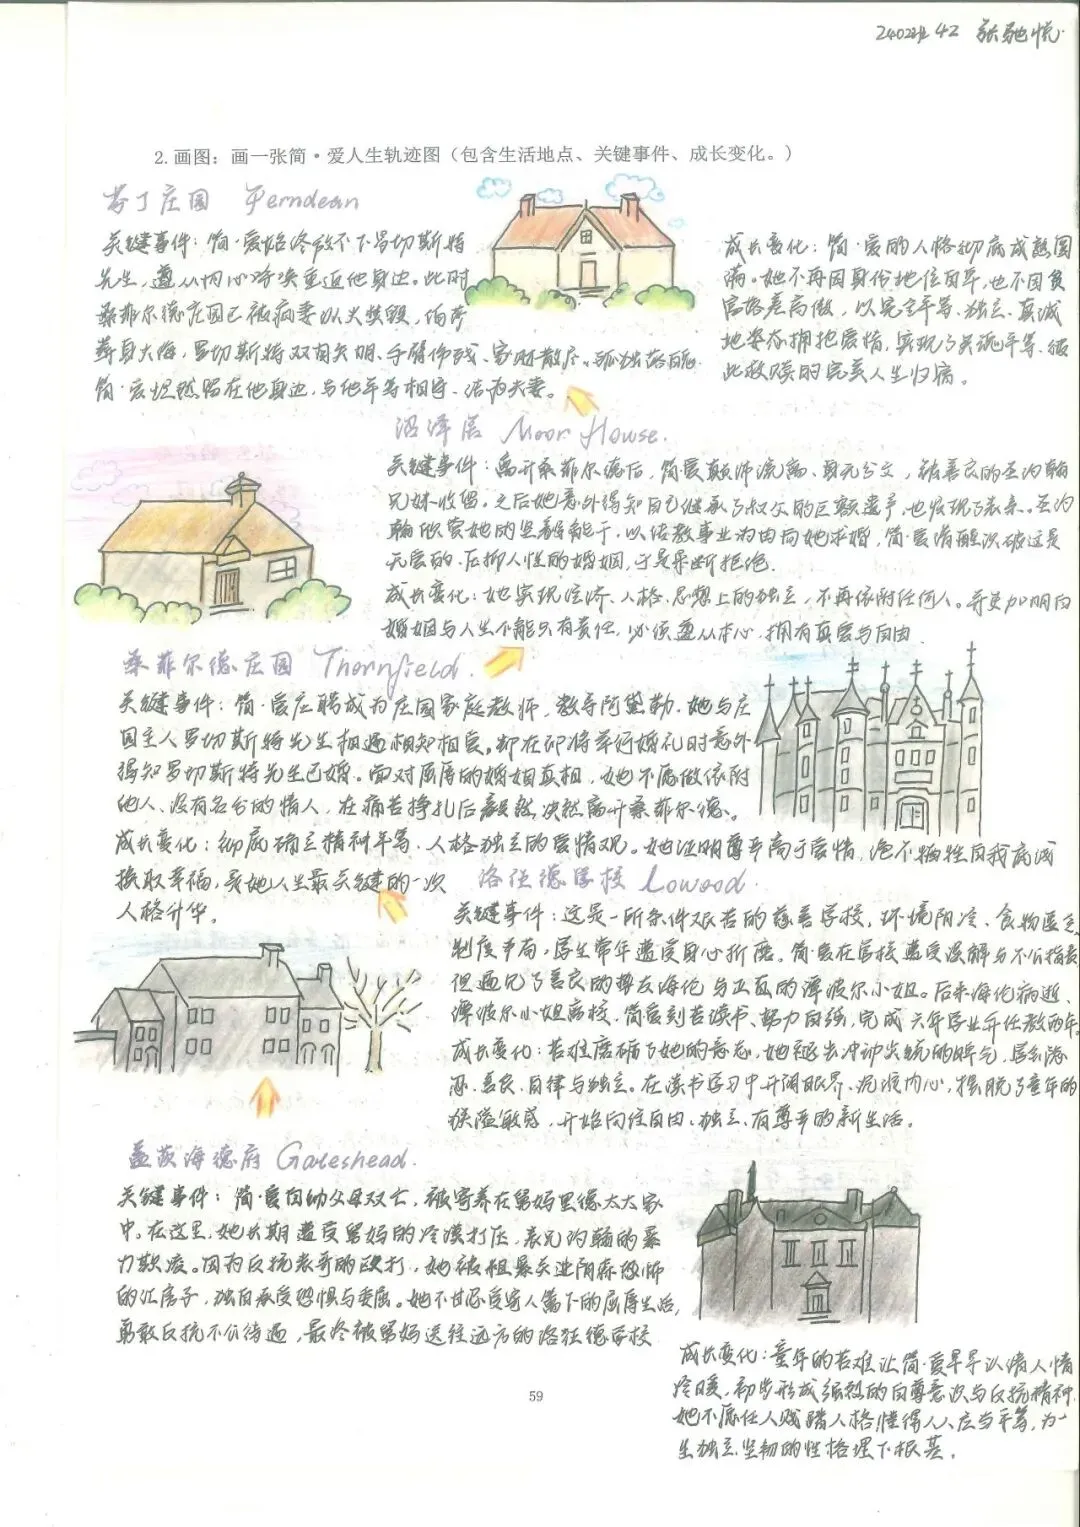 2402班 42 张驰悦
2.画图：画一张简·爱人生轨迹图（包含生活地点、关键事件、成长变化。）
芬丁庄园 Ferndean
关键事件：简·爱始终放不下罗切斯特
先生，遵从内心呼唤重返他身边。此时
桑菲尔德庄园已被病妻以火焚毁，伯莎
葬身火海，罗切斯特双目失明、手臂伤残、家财散尽、孤独落魄。
简·爱坦然留在他身边，与他平等相守，结为夫妻。
成长变化：简·爱的人格彻底成熟圆
满。她不再因身份地位自卑，也不因贫
富落差高傲，以完全平等、独立、真诚
地姿态拥抱爱情，实现了灵魂平等、彼
此救赎的完美人生归宿。
沼泽居 Moor House
关键事件：离开桑菲尔德后，简爱颠沛流离、身无分文，被善良的圣约翰
兄妹收留。之后她意外得知自己继承了叔父的巨额遗产，也发现了亲亲。圣约
翰欣赏她的坚韧能干，以传教事业为由向她求婚，简·爱清醒识破这是
无爱的、压抑人性的婚姻，于是果断拒绝。
成长变化：她实现经济、人格、思想上的独立，不再依附任何人。并更加明白
婚姻与人生不能只有责任，必须遵从本心，拥有真爱与自由
桑菲尔德庄园 Thornfield
关键事件：简·爱应聘成为庄园家庭教师，教导阿黛勒。她与庄
园主人罗切斯特先生相遇相知相爱。却在即将举行婚礼时意外
得知罗切斯特先生已婚。面对屈辱的婚姻真相，她不愿做依附
他人、没有名分的情人，在痛苦挣扎后毅然决然离开桑菲尔德。
成长变化：彻底确立精神平等、人格独立的爱情观。她证明尊严高于爱情，绝不牺牲自我底线
换取幸福，是她人生最关键的一次
人格升华。
洛伍德学校 Lowood
关键事件：这是一所条件艰苦的慈善学校，环境阴冷、食物匮乏
制度严苛，学生常年遭受身心折磨。简·爱在学校遭受误解与不公指责
但遇见了善良的挚友海伦与正直的谭波尔小姐。后来海伦病逝、
谭波尔小姐离校，简爱刻苦读书、努力自强，完成六年学业并任教两年。
成长变化：苦难磨砺了她的意志，她褪去冲动尖锐的脾气，学会隐
忍、善良、自律与独立。在读书学习中开阔眼界、沉淀内心，摆脱了童年的
狭隘敏感，开始向往自由、独立、有尊严的新生活。
盖茨海德府 Gateshead
关键事件：简·爱自幼父母双亡，被寄养在舅妈里德太太家
中。在这里，她长期遭受舅妈的冷漠打压，表兄约翰的暴
力欺凌。因为反抗表哥的殴打，她被粗暴关进阴森恐怖
的红房子，独自承受恐惧与委屈。她不甘忍受寄人篱下的屈辱生活，
勇敢反抗不公待遇，最终被舅妈送往远方的洛伍德学校
成长变化：童年的苦难让简·爱早早认清人情
冷暖，初步形成强烈的自尊意识与反抗精神，
她不愿任人贱踏人格，懂得人人应当平等，为一
生独立坚韧的性格埋下根基。
59